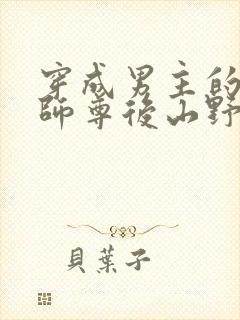 穿成男主的
師尊後山野
貝葉子